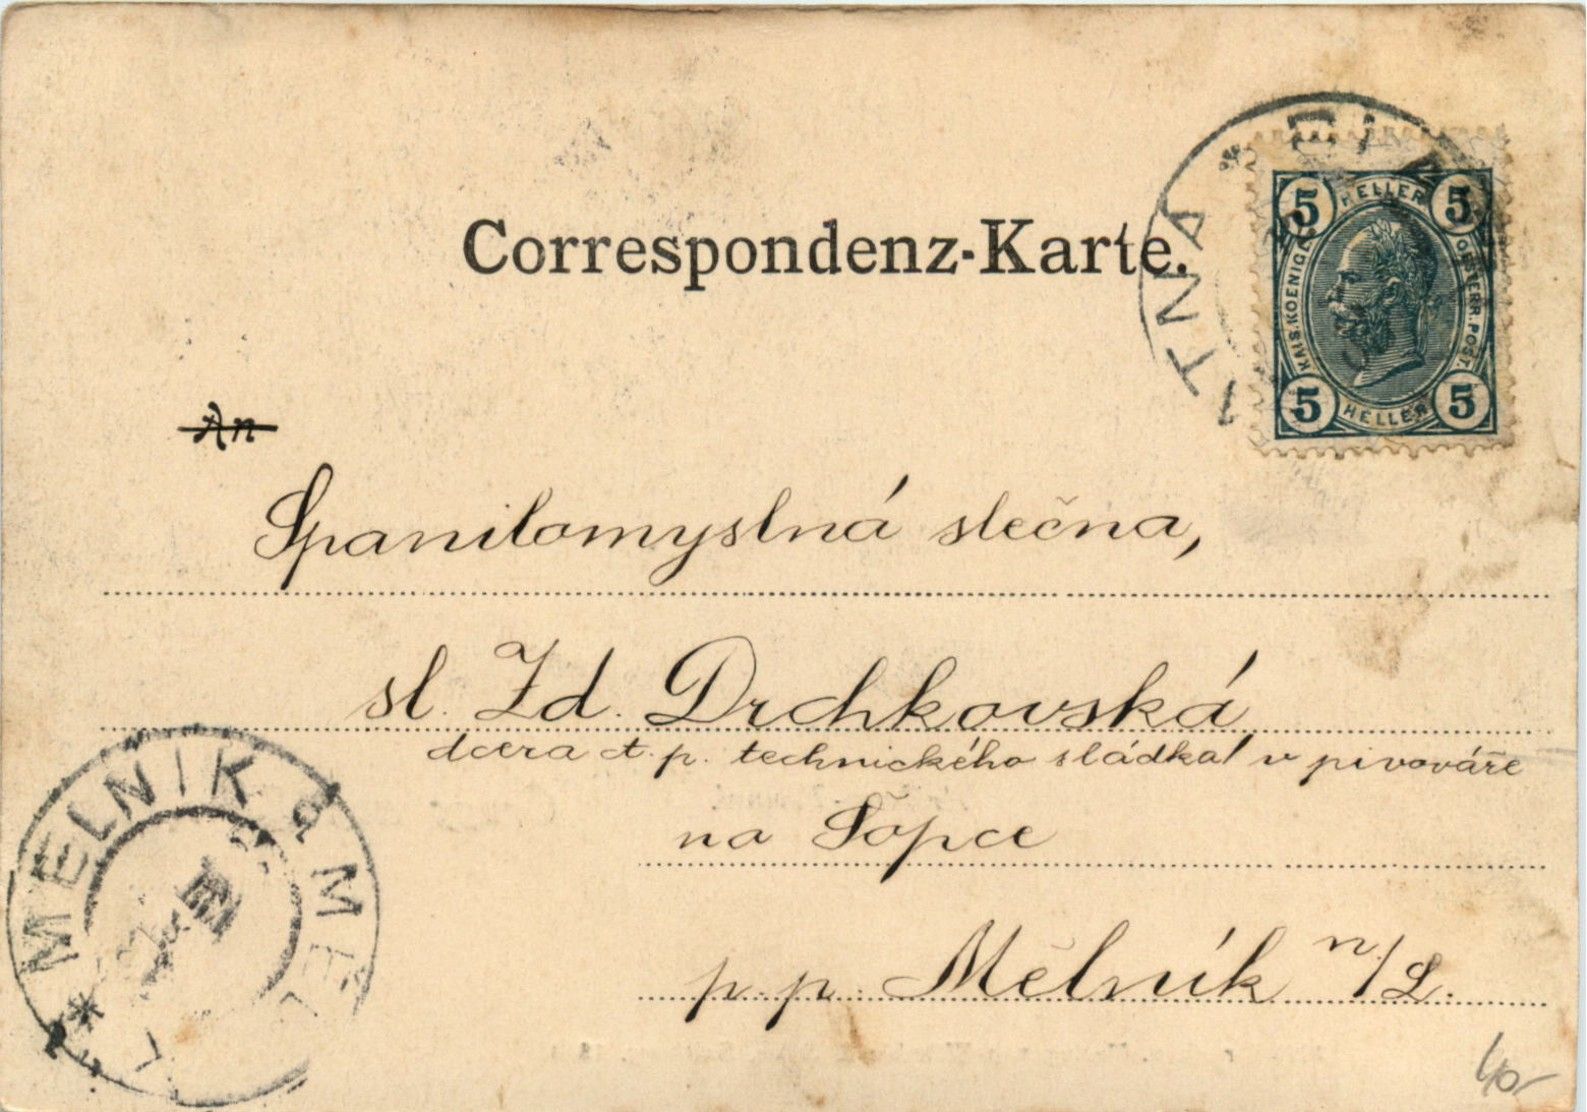 Correspondenz-Karte.
5 HELLER 5
KAIS. KOENIGL. OESTERR. POST.
5 HELLER 5
An
Spanilomyslná slečna,
sl. Zd. Drchkovská
dcera t. p. technického sládka v pivováře
na Šopce
p. p. Mělník n/L.
MELNIK
40-